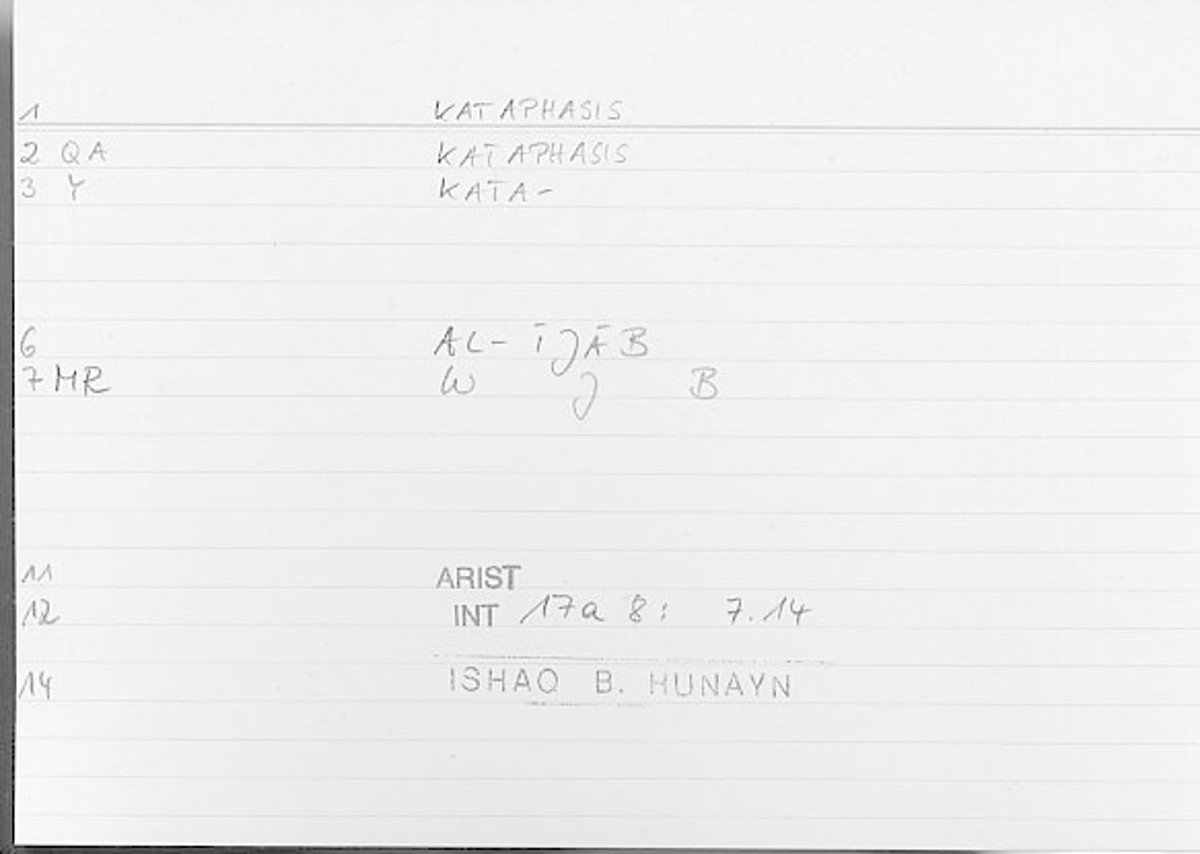 1 KATAPHASIS
2 QA KATAPHASIS
3 Y KATA-
6 AL-ĪJĀB
7 MR W J B
11 ARIST
12 INT 17a 8: 7.14
14 ISHAQ B. HUNAYN